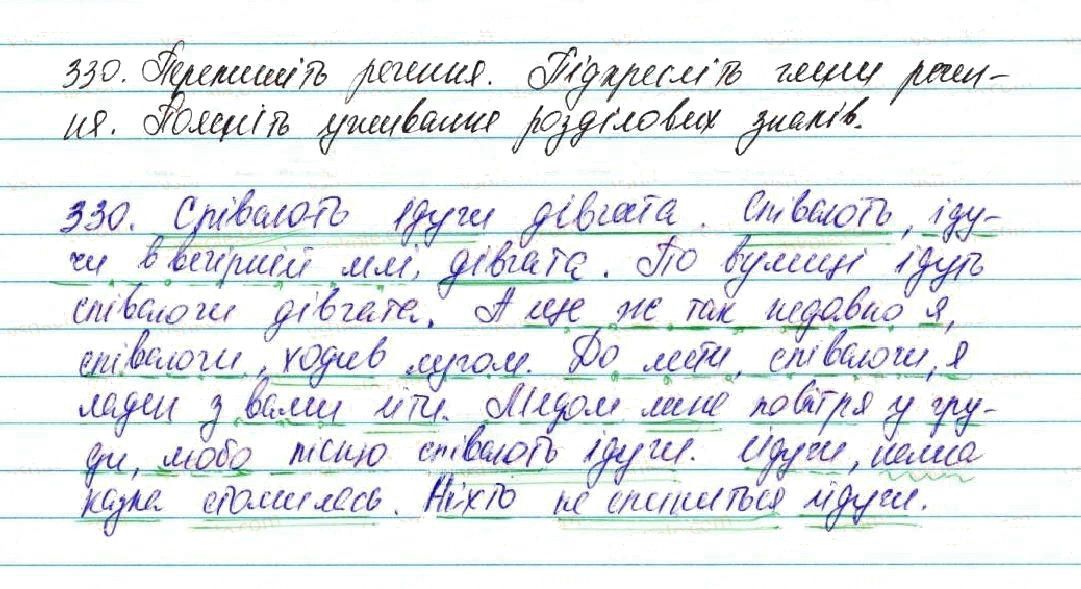 330. Перепишіть речення. Підкресліть члени речен-
ня. Поясніть уживання розділових знаків.
330. Співають ідучи дівчата. Співають, іду-
чи в вечірній млі, дівчата. По вулиці ідуть
співаючи дівчата. А ще ж так недавно я,
співаючи, ходив лугом. До мети, співаючи, я
ладен з вами йти. Медом лине повітря у гру-
ди, любо пісню співають ідучи. Йдучи,
казка стомилась. Ніхто не спиниться йдучи.